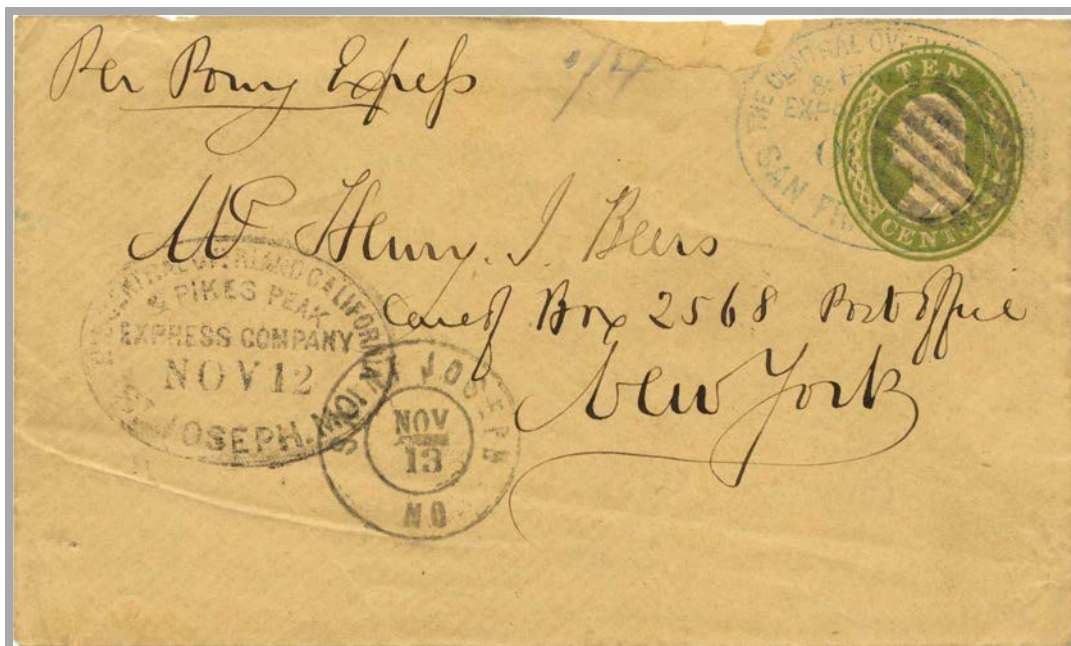 Per Pony Express
1/4
THE CENTRAL OVER
& P
EXP
SAN FR
TEN
CENTS
Mr Henry. J. Beers
Care of Box 2568 Post Office
New York
CENTRAL OVERLAND CALIFORNIA
& PIKES PEAK
EXPRESS COMPANY
NOV 12
ST JOSEPH. MO.
ST JOSEPH
NOV
13
MO